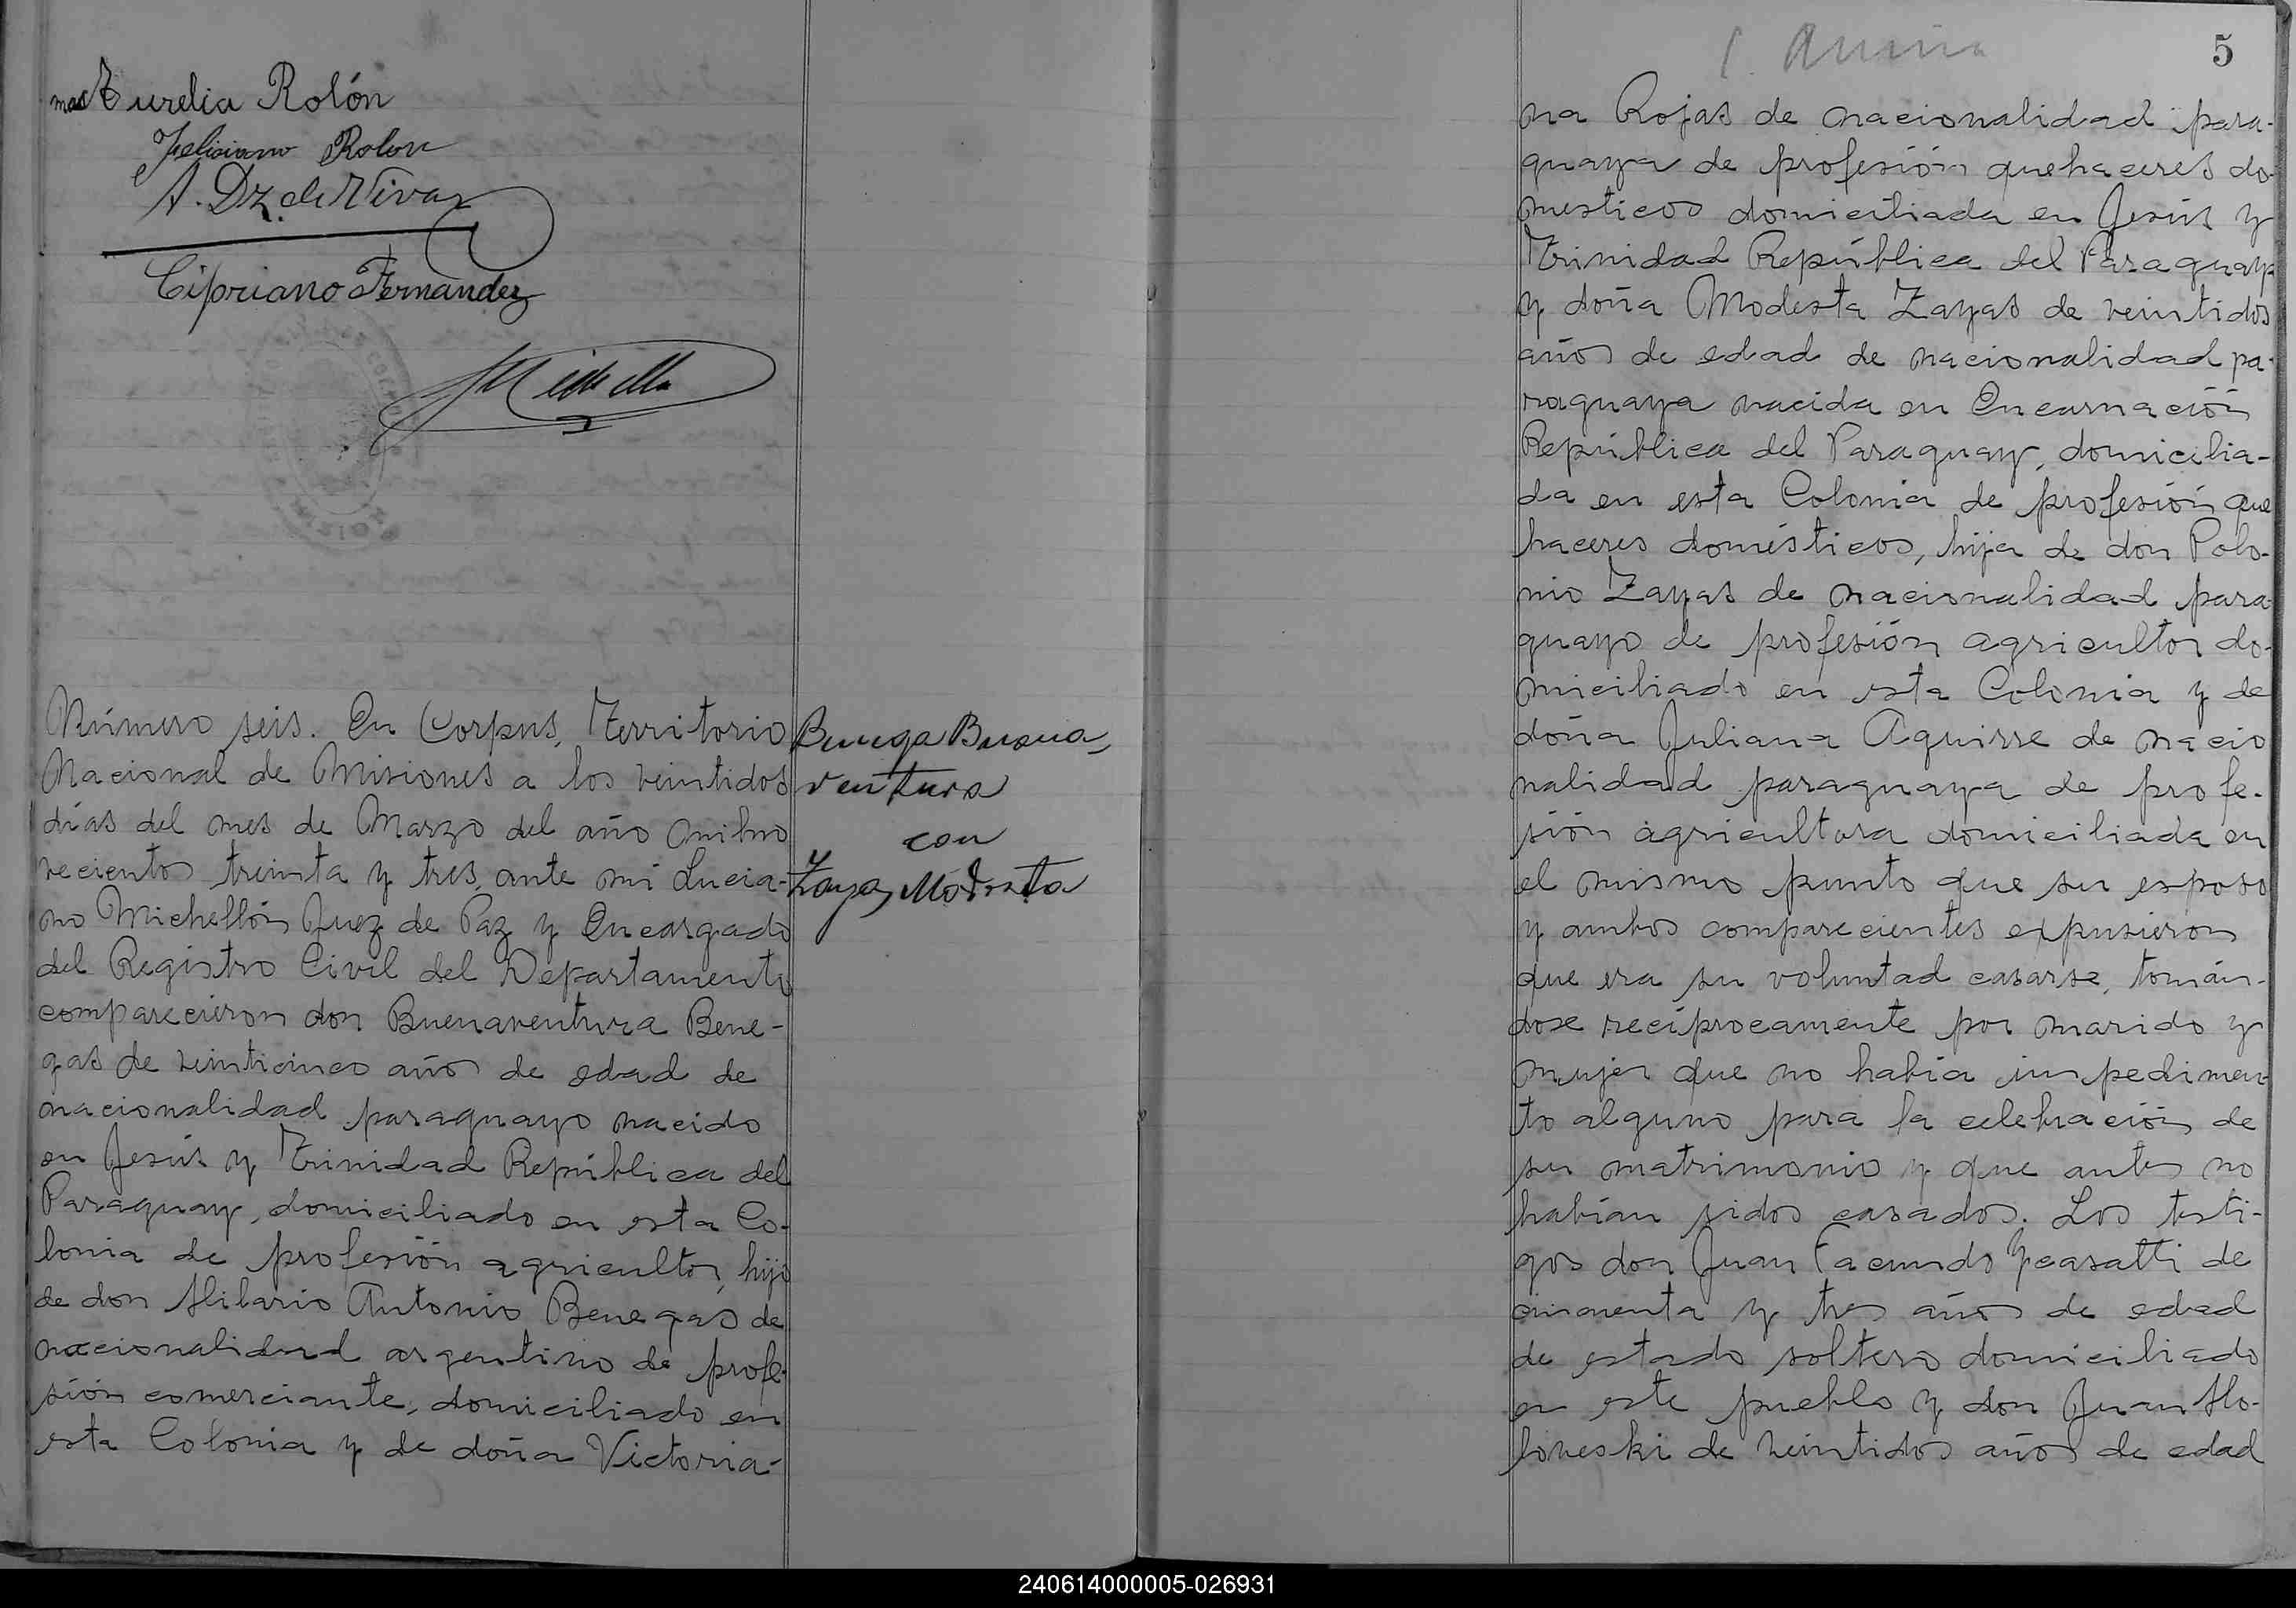 Aurelia Rolón
Feliciano Rolon
A. Dz. de Vivar
Cipriano Fernandez
Número seis. En Corpus, Territorio
Nacional de Misiones a los veintidos
días del mes de Marzo del año mil no
vecientos treinta y tres, ante mi Lucia-
no Michellón Juez de Paz y Encargado
del Registro Civil del Departamento
comparecieron don Buenaventura Bene-
gas de veinticinco años de edad de
nacionalidad paraguayo nacido
en Jesús y Trinidad República del
Paraguay, domiciliado en esta Co-
lonia de profesión agricultor, hijo
de don Hilario Antonio Benegas de
nacionalidad argentino de profe-
sión comerciante, domiciliado en
esta Colonia y de doña Victoria-
Benega Buena-
ventura
con
Zayas Modesta
5
na Rojas de nacionalidad para-
guaya de profesión quehaceres do-
mesticos domiciliada en Jesús y
Trinidad República del Paraguay
y doña Modesta Zayas de veintidos
años de edad de nacionalidad pa-
raguaya nacida en Encarnación
República del Paraguay, domicilia-
da en esta Colonia de profesión que
haceres domésticos, hija de don Polo-
nio Zayas de nacionalidad para-
guayo de profesión agricultor do-
miciliado en esta Colonia y de
doña Juliana Aguirre de nacio
nalidad paraguaya de profe-
sión agricultora domiciliada en
el mismo punto que su esposo
y ambos comparecientes expusieron
que era su voluntad casarse, tomán-
dose recíprocamente por marido y
mujer que no había impedimen-
to alguno para la celebración de
su matrimonio y que antes no
habían sidos casados. Los testi-
gos don Juan Facundo Ycasatti de
cincuenta y tres años de edad
de estado soltero domiciliado
en este pueblo y don Juan Ho-
loveski de veintidos años de edad
240614000005-026931